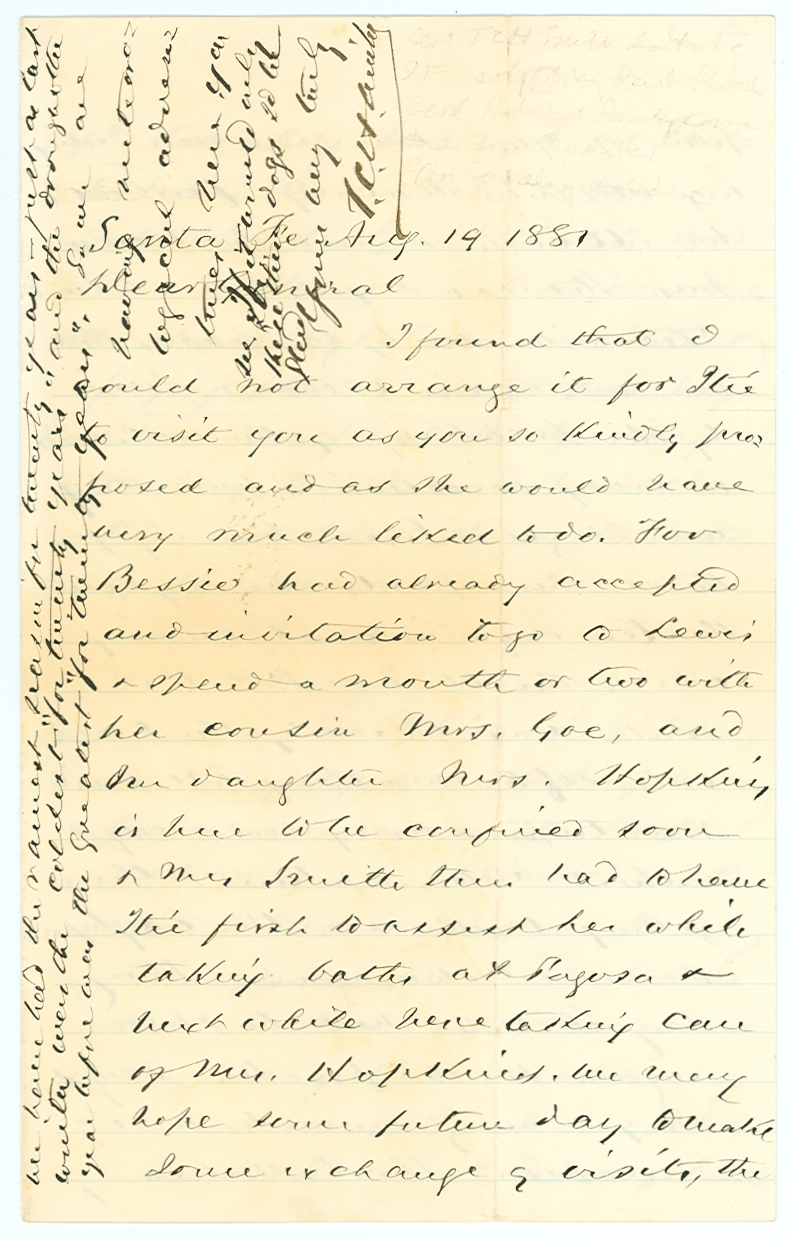 Santa Fe Aug. 19 1881
Dear General
I found that I
could not arrange it for Itie
to visit you as you so kindly pro=
posed and as she would have
very much liked to do. For
Bessie had already accepted
and invitation to go to Lewis
& spend a month or two with
her cousin Mrs. Goe, and
our daughter Mrs. Hopkins
is here to be confined soon
& Mrs Smith then had to have
Itie first to assist her while
taking baths at Pagosa &
next while here taking care
of Mrs. Hopkins. We may
hope some future day to make
some exchange of visits, the
we have had the rainiest season "for twenty years - just as last
winter was the coldest "for twenty years", and the drought the
year before was the greatest "for twenty years". So we are
having meteoro=
logical adven=
tures here. You
see
these dogs to be
Yours very truly
T.C.H. Smith